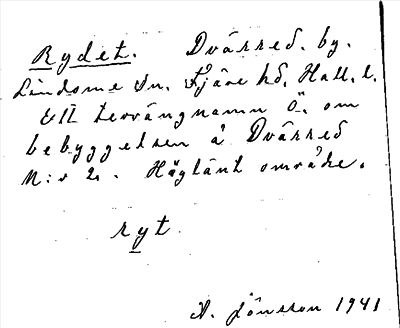 Rydet. Dvärred. by.
Lindome sn. Fjäre hd. Hall. l.
Ett terrängnamn Ö. om
bebyggelsen å Dvärred
N:r 2. Höglänt område.
ryt
A. Jönsson 1941